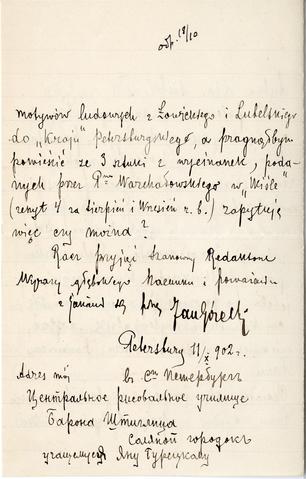 odp. 18/10
motywów ludowych z Łowickiego i Lubelskiego
do „Kraju" Petersburgskiego, a pragnąłbym
powieścić ze 3 sztuki z wycinanek, poda-
nych przez Pna Warchałowskiego w „Miśle"
(zeszyt 4 za Sierpień i Wrzesień r. b.) zapytuję
więc czy można?
Racz przyjąć Szanowny Redaktorze
Wyrazy głębokiego szacunku i poważania
z jakiemi się piszę Jan Górecki
Petersburg 11/X 902 r.
Adres mój въ С. Петербургъ
Центральное рисовальное училище
Барона Штиглица
Соляной городокъ
учащемуся Яну Гурецкому